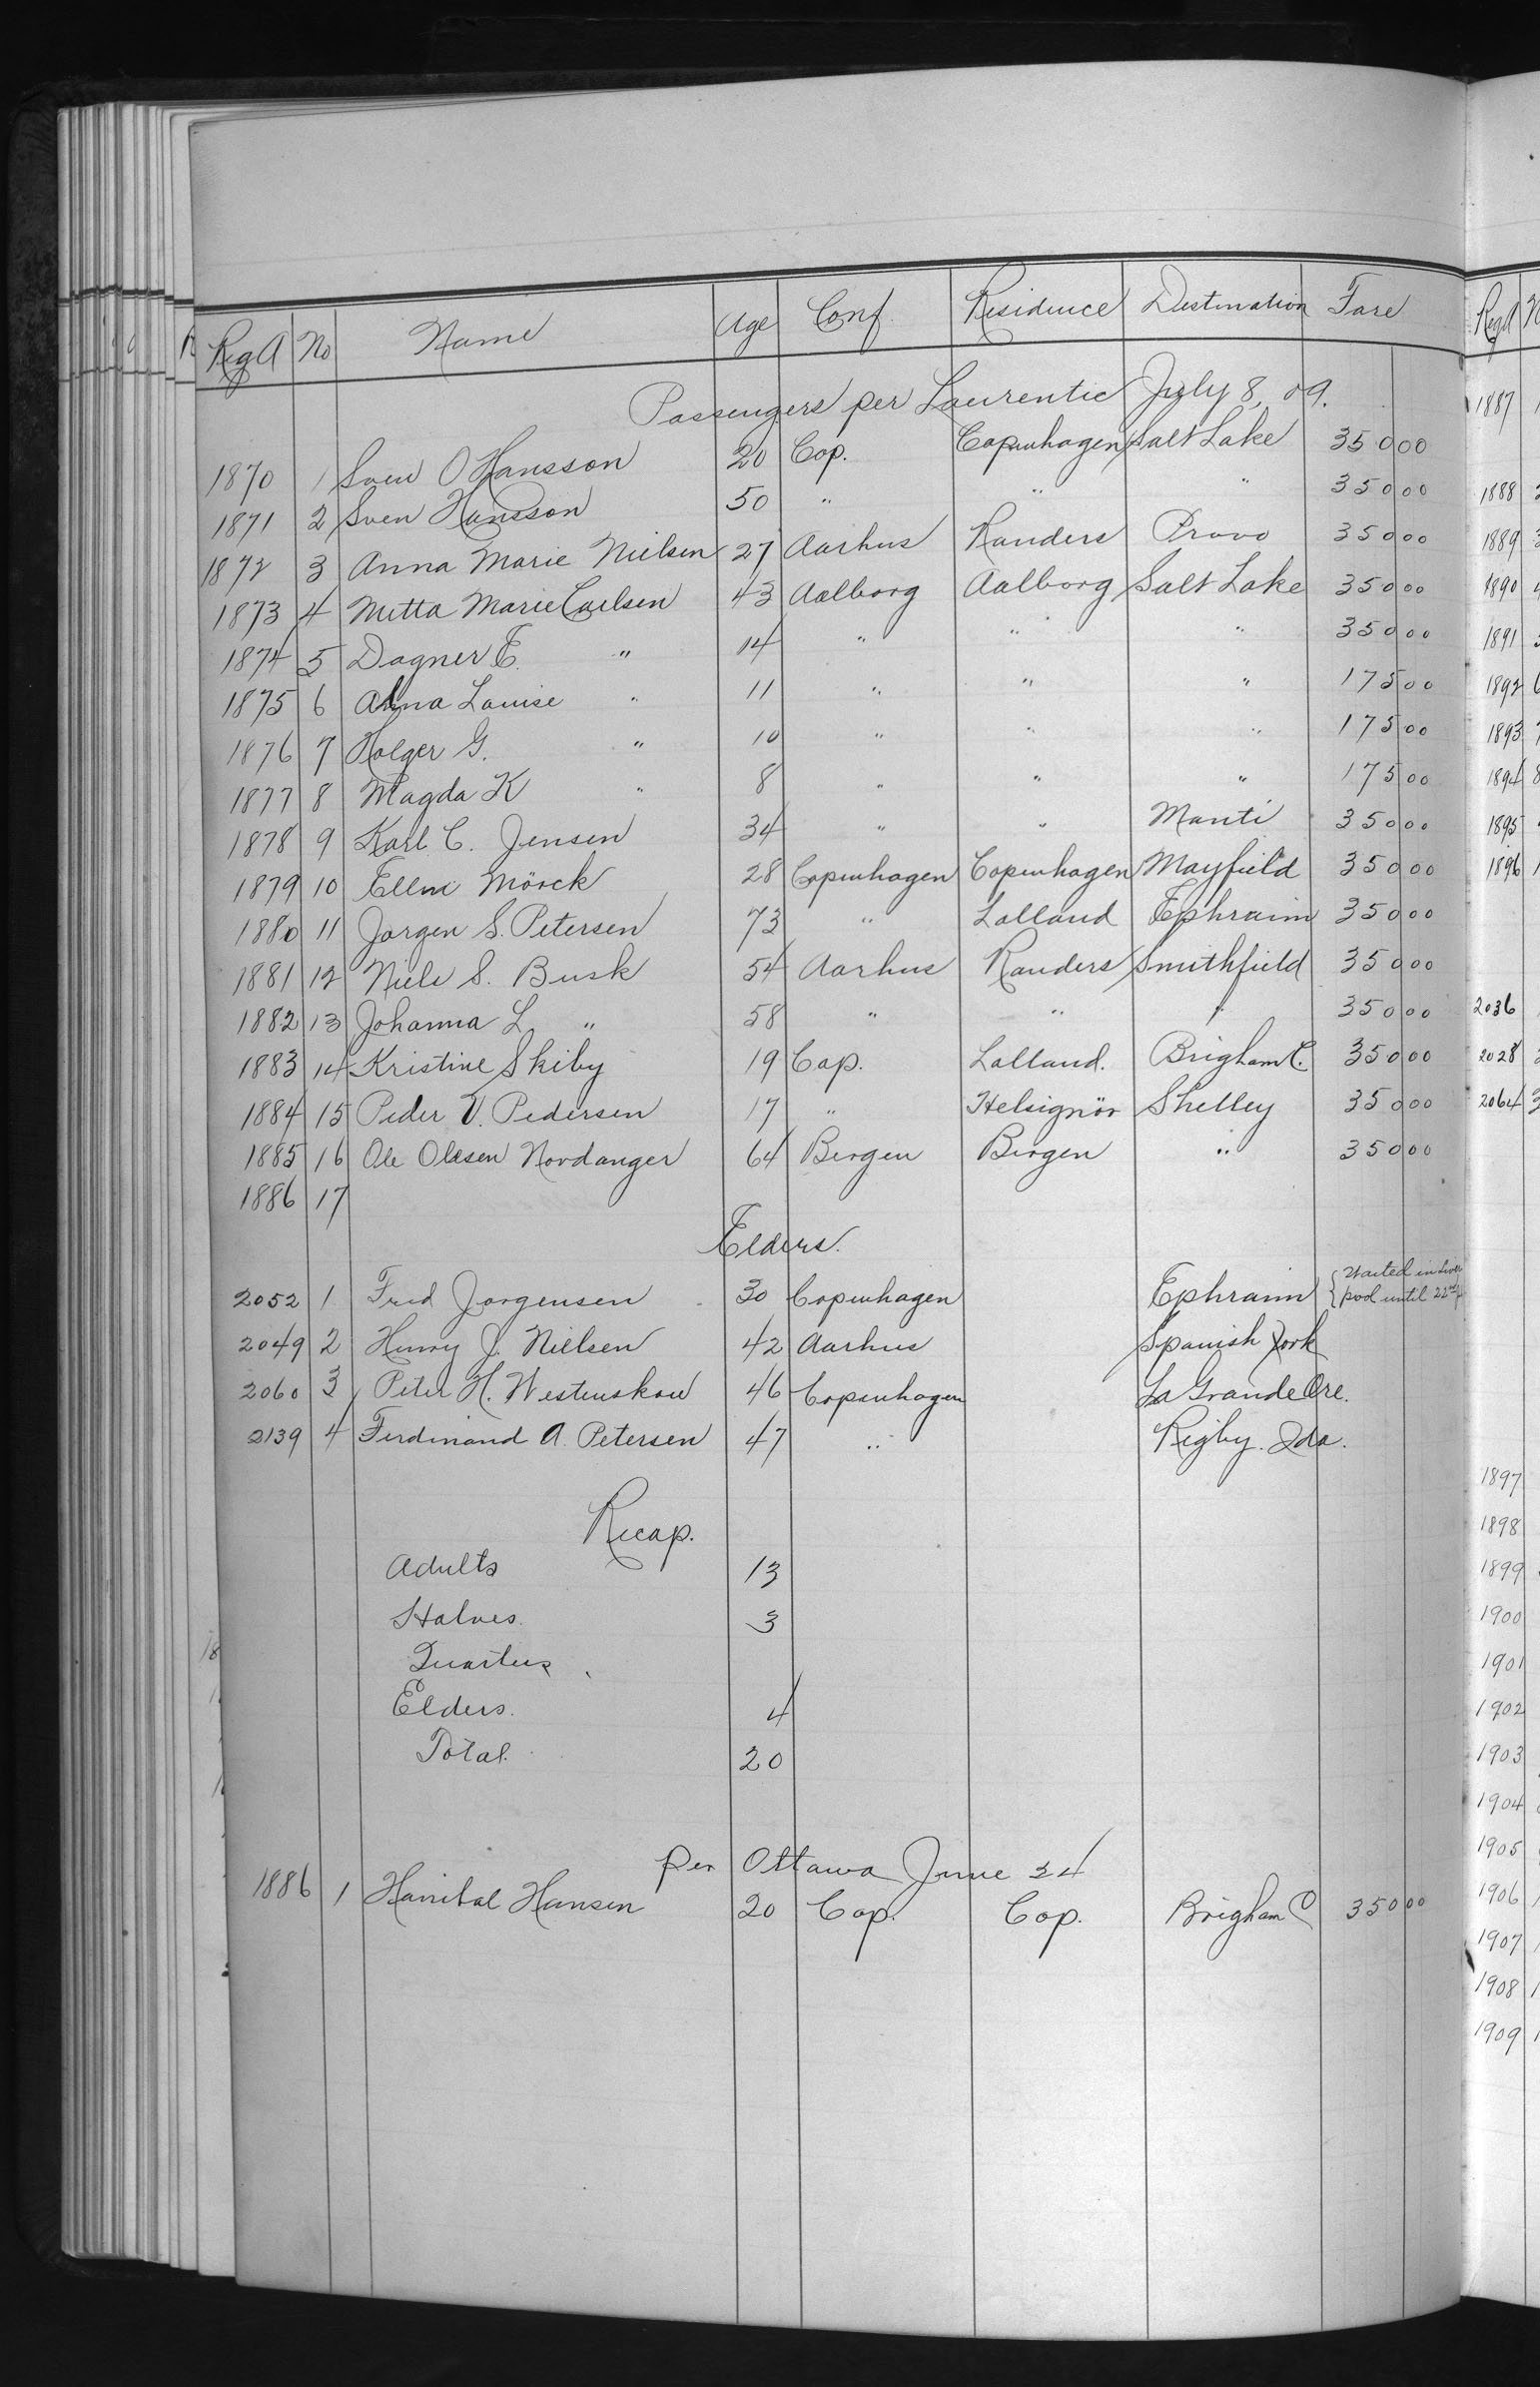 Reg A No Name Age Conf. Residence Destination Fare
Passengers per Laurentic July 8, 09.
1870 1 Sven O Hansson 20 Cop. Copenhagen Salt Lake 350 00
1871 2 Sven Hansson 50 " " " 350 00
1872 3 Anna Marie Nielsen 27 Aarhus Randers Provo 350 00
1873 4 Metta Marie Carlsen 43 Aalborg Aalborg Salt Lake 350 00
1874 5 Dagner E. " 14 " " " 350 00
1875 6 Anna Louise " 11 " " " 175 00
1876 7 Holger G. " 10 " " " 175 00
1877 8 Magda K " 8 " " " 175 00
1878 9 Karl C. Jensen 34 " " Manti 350 00
1879 10 Ellen Mörck 28 Copenhagen Copenhagen Mayfield 350 00
1880 11 Jorgen S. Petersen 73 " Lolland Ephraim 350 00
1881 12 Niels S. Busk 54 Aarhus Randers Smithfield 350 00
1882 13 Johanna L " 58 " " " 350 00
1883 14 Kristine Skiby 19 Cop. Lolland. Brigham C. 350 00
1884 15 Peder V. Pedersen 17 " Helsignör Shelley 350 00
1885 16 Ole Olesen Nordanger 64 Bergen Bergen " 350 00
1886 17
Elders.
2052 1 Fred Jorgensen 30 Copenhagen Ephraim { Waited in Liver
pool until 22nd
2049 2 Henry J. Nielsen 42 Aarhus Spanish Fork
2060 3 Peter H. Westenskow 46 Copenhagen La Grande Ore.
2139 4 Ferdinand A. Petersen 47 " Rigby. Ida.
Recap.
Adults 13
Halves. 3
Quarters
Elders. 4
Total. 20
per Ottawa June 24
1886 1 Hanibal Hansen 20 Cop. Cop. Brigham C 350 00
Reg A
1887
1888
1889
1890
1891
1892
1893
1894
1895
1896
2036
2028
2064
1897
1898
1899
1900
1901
1902
1903
1904
1905
1906
1907
1908
1909